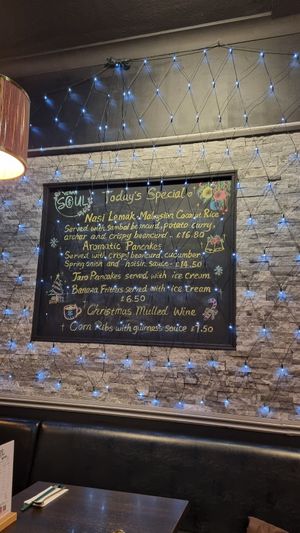 SOUL
Today's Special
Nasi Lemak Malaysian Coconut Rice
Served with sambal beancurd, potato curry,
achar and crispy beancurd. £16.80
Aromatic Pancakes
Served with crispy beancurd, cucumber
Spring onion and hoisin sauce £14.50
Taro Pancakes served with ice cream
Banana Fritters served with ice cream
£6.50
Christmas Mulled Wine
Corn Ribs with guinness sauce £7.50